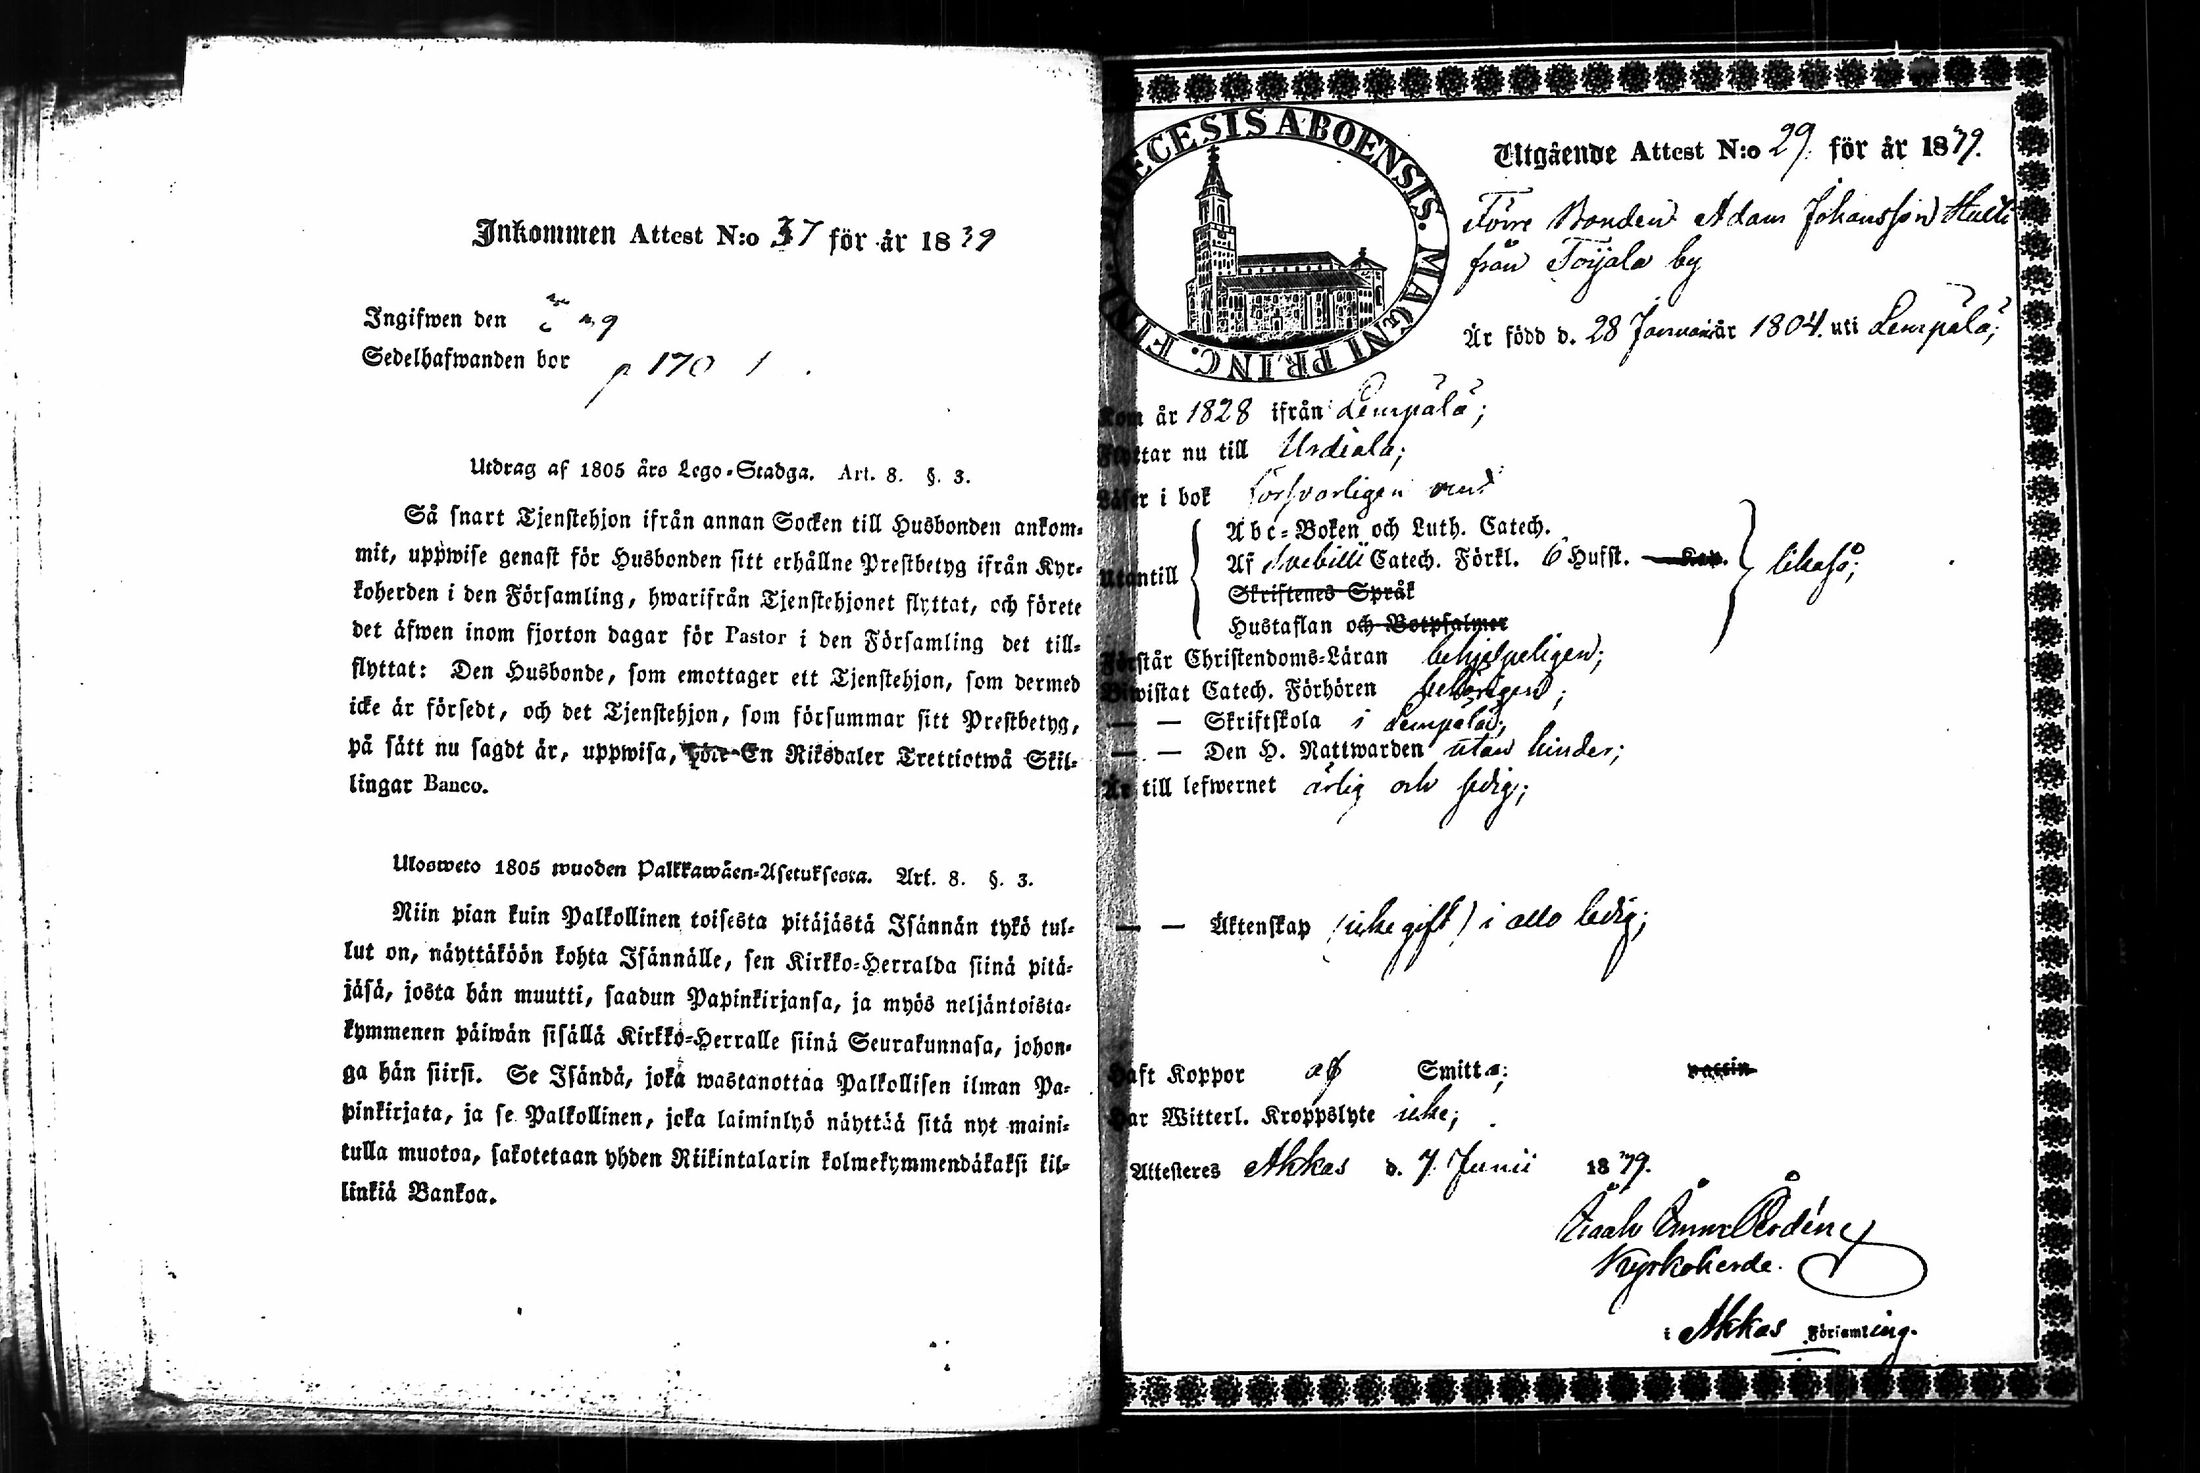 Inkommen Attest N:o 37 för år 1839
Ingifwen den
Sedelhafwanden bor p 170
Utdrag af 1805 års Lego-Stadga. Art. 8. §. 3.
Så snart Tjenstehjon ifrån annan Socken till Husbonden ankom-
mit, uppwise genast för Husbonden sitt erhållne Prestbetyg ifrån Kyr-
koherden i den Församling, hwarifrån Tjenstehjonet flyttat, och förete
det äfwen inom fjorton dagar för Pastor i den Församling det till-
flyttat: Den Husbonde, som emottager ett Tjenstehjon, som dermed
icke är försedt, och det Tjenstehjon, som försummar sitt Prestbetyg,
på sätt nu sagdt är, uppwisa, böte En Riksdaler Trettiotwå Skil-
lingar Banco.
Ulosweto 1805 wuoden Palkkawäen-Asetuksesta. Art. 8. §. 3.
Niin pian kuin Palkollinen toisesta pitäjästä Isännän tykö tul-
lut on, näyttäköön kohta Isännälle, sen Kirkko-Herralda siinä pitä-
jäsä, josta hän muutti, saadun Papinkirjansa, ja myös neljäntoista-
kymmenen päiwän sisällä Kirkko-Herralle siinä Seurakunnasa, johon-
ga hän siirsi. Se Isändä, joka wastanottaa Palkollisen ilman Pa-
pinkirjata, ja se Palkollinen, joka laiminlyö näyttää sitä nyt maini-
tulla muotoa, sakotetaan yhden Riikintalarin kolmekymmendäkaksi kil-
linkiä Bankoa.
DIOECESIS ABOENSIS. MAGNI PRINC. FINL.
Utgående Attest N:o 29. för år 1839.
Förre Bonden Adam Johansson
från Toijala by
Är född d. 28 Januari år 1804. uti Lempälä;
Kom år 1828 ifrån Lempälä;
Flyttar nu till Urdiala;
Läser i bok försvarligen
Utantill
Abc-Boken och Luth. Catech.
Af Svebilii Catech. Förkl. 6 Hufst. Kap.
Skriftenes Språk
Hustaflan och Botpsalmer
likaså;
Förstår Christendoms-Läran behjelpeligen;
Biwistat Catech. Förhören behörigen;
— — Skriftskola i Lempälä;
— — Den H. Nattwarden utan hinder;
Är till lefwernet ärlig och sedig;
— — Äktenskap (icke gift) i allo ledig;
Haft Koppor af Smitta; vaccin
Har Witterl. Kroppslyte icke;
Attesteres Akkas d. 7. Junii 1839.
Kyrkoherde.
i Akkas Församling.